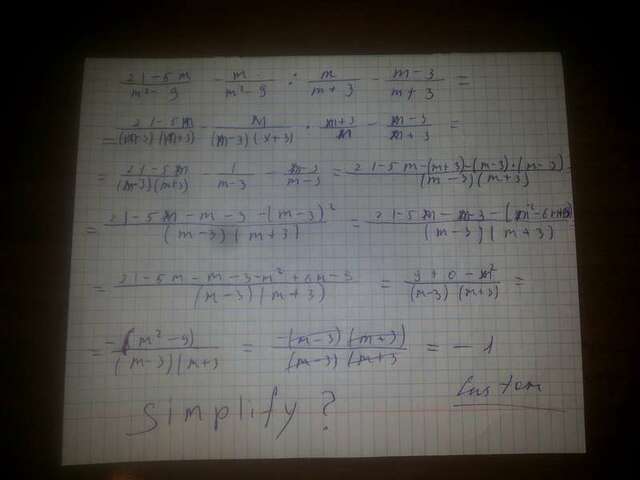 (21-5m)/(m²-9) - m/(m²-9) : m/(m+3) - (m-3)/(m+3) =
= (21-5m)/((m-3)(m+3)) - m/((m-3)(x+3)) · (m+3)/m - (m-3)/(m+3) =
= (21-5m)/((m-3)(m+3)) - 1/(m-3) - (m-3)/(m-3) = (21-5m-(m+3)-(m-3)·(m-3))/((m-3)(m+3)) =
= (21-5m-m-3-(m-3)²)/((m-3)(m+3)) = (21-5m-m-3-(m²-6m+9))/((m-3)(m+3))
= (21-5m-m-3-m²+6m-9)/((m-3)(m+3)) = (9+0-m²)/((m-3)(m+3)) =
= -(m²-9)/((m-3)(m+3) = -(m-3)(m+3)/((m-3)(m+3) = -1
Simplify?